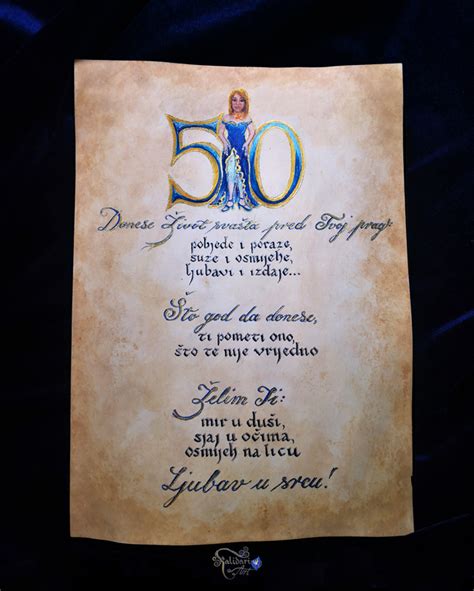 50
Donese Život svašta pred Tvoj prag:
pobjede i poraze,
suze i osmijehe,
ljubavi i izdaje...
Što god da donese,
ti pometi ono,
što te nije vrijedno
Želim Ti:
mir u duši,
sjaj u očima,
osmijeh na licu
Ljubav u srcu!
Kalidari
Art